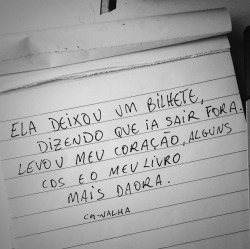 ELA DEIXOU UM BILHETE,
DIZENDO QUE IA SAIR FORA.
LEVOU MEU CORAÇÃO, ALGUNS
CDS E O MEU LIVRO
MAIS DAORA.
CANALHA